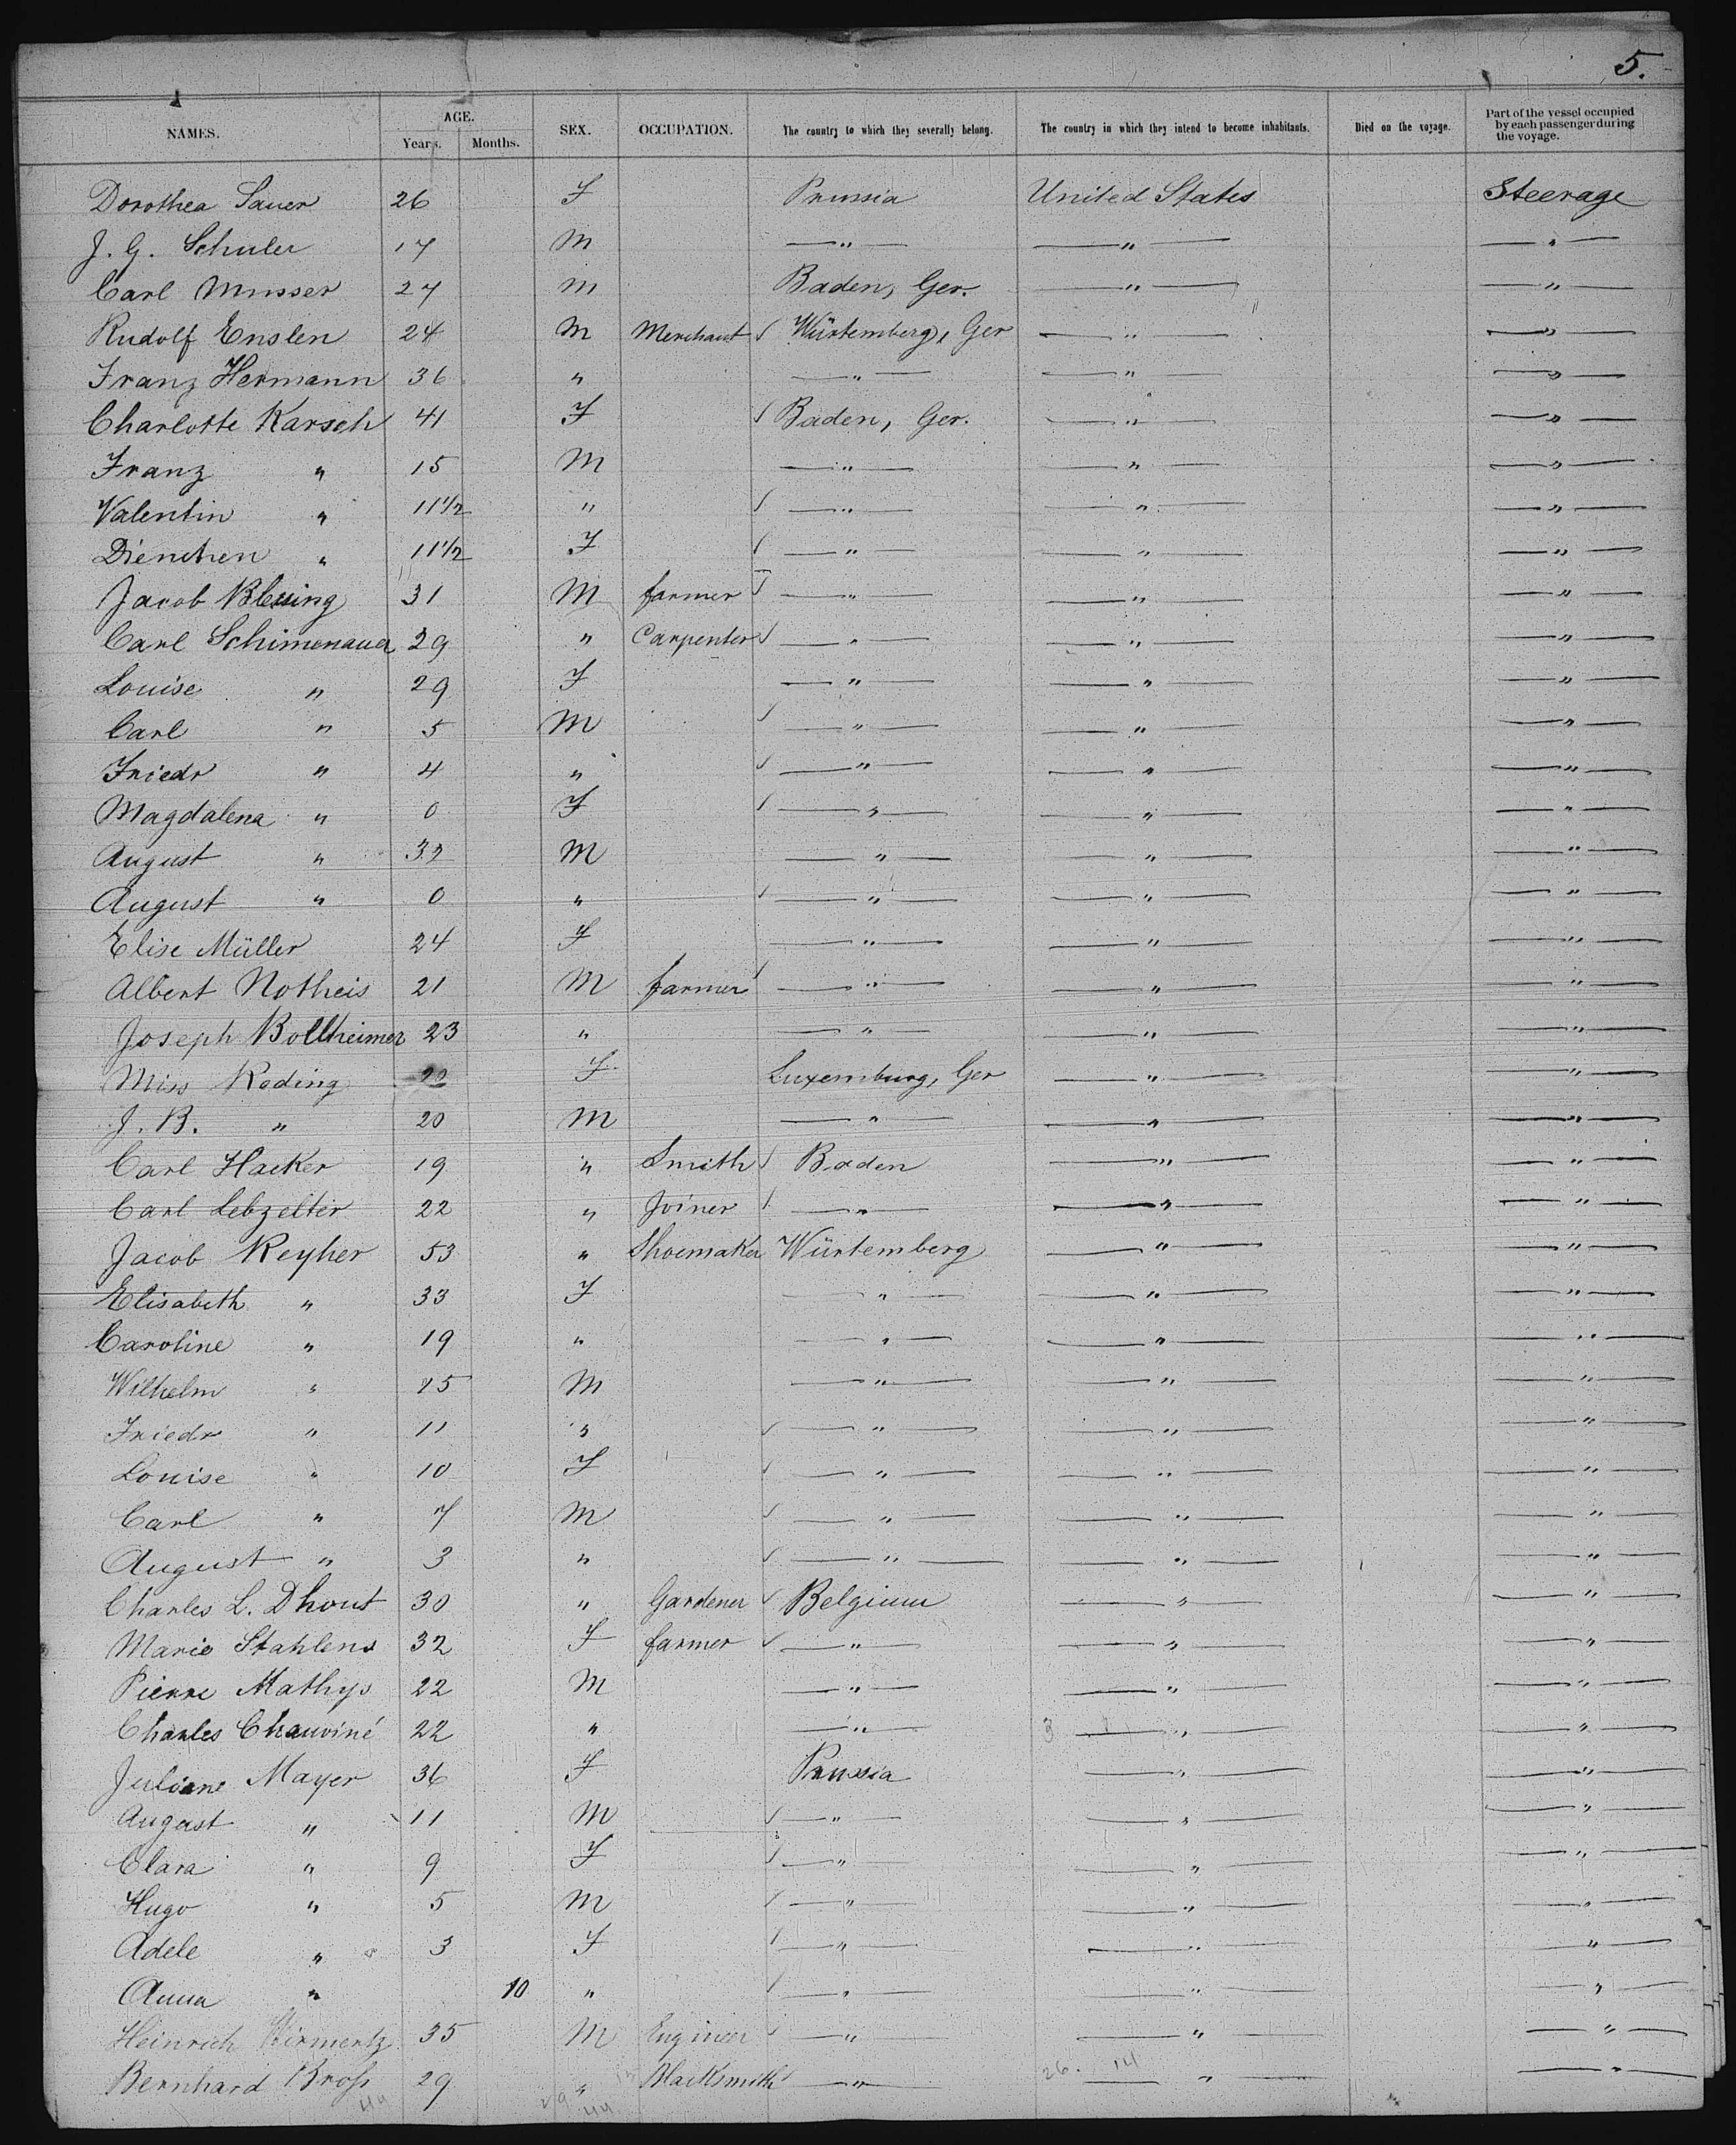 5.
NAMES. AGE. Years. Months. SEX. OCCUPATION. The country to which they severally belong. The country in which they intend to become inhabitants. Died on the voyage. Part of the vessel occupied by each passenger during the voyage.
Dorothea Sauer 26 F Prussia United States Steerage
J. G. Schuler 17 M " " "
Carl Musser 27 M Baden, Ger. " "
Rudolf Enslen 24 M Merchant Würtemberg, Ger " "
Franz Hermann 36 " " " "
Charlotte Karsch 41 F Baden, Ger. " "
Franz " 15 M " " "
Valentin " 11 1/2 " " " "
Dienchen " 11 1/2 F " " "
Jacob Blessing 31 M farmer " " "
Carl Schimenauer 29 " Carpenter " " "
Louise " 29 F " " "
Carl " 5 M " " "
Friedr " 4 " " " "
Magdalena " 0 F " " "
August " 32 M " " "
August " 0 " " " "
Elise Müller 24 F " " "
Albert Notheis 21 M farmer " " "
Joseph Bollheimer 23 " " " "
Miss Koding 20 F. Luxemburg, Ger " "
J. B. " 20 M " " "
Carl Hacker 19 " Smith Baden " "
Carl Lebzelter 22 " Joiner " " "
Jacob Keyher 53 " Shoemaker Würtemberg " "
Elisabeth " 33 F " " "
Caroline " 19 " " " "
Wilhelm " 15 M " " "
Friedr " 11 " " " "
Louise " 10 F " " "
Carl " 7 M " " "
August " 3 " " " "
Charles L. Dhout 30 " Gardener Belgium " "
Marie Stahlens 32 F farmer " " "
Pierre Mathys 22 M " " "
Charles Chauviné 22 " " " "
Juliane Mayer 36 F Prussia " "
August " 11 M " " "
Clara " 9 F " " "
Hugo " 5 M " " "
Adele " 3 F " " "
Anna " 10 " " " "
Heinrich 35 M Engineer " " "
Bernhard Bross 29 " Blacksmith " 26. 14 " "
44 29 44